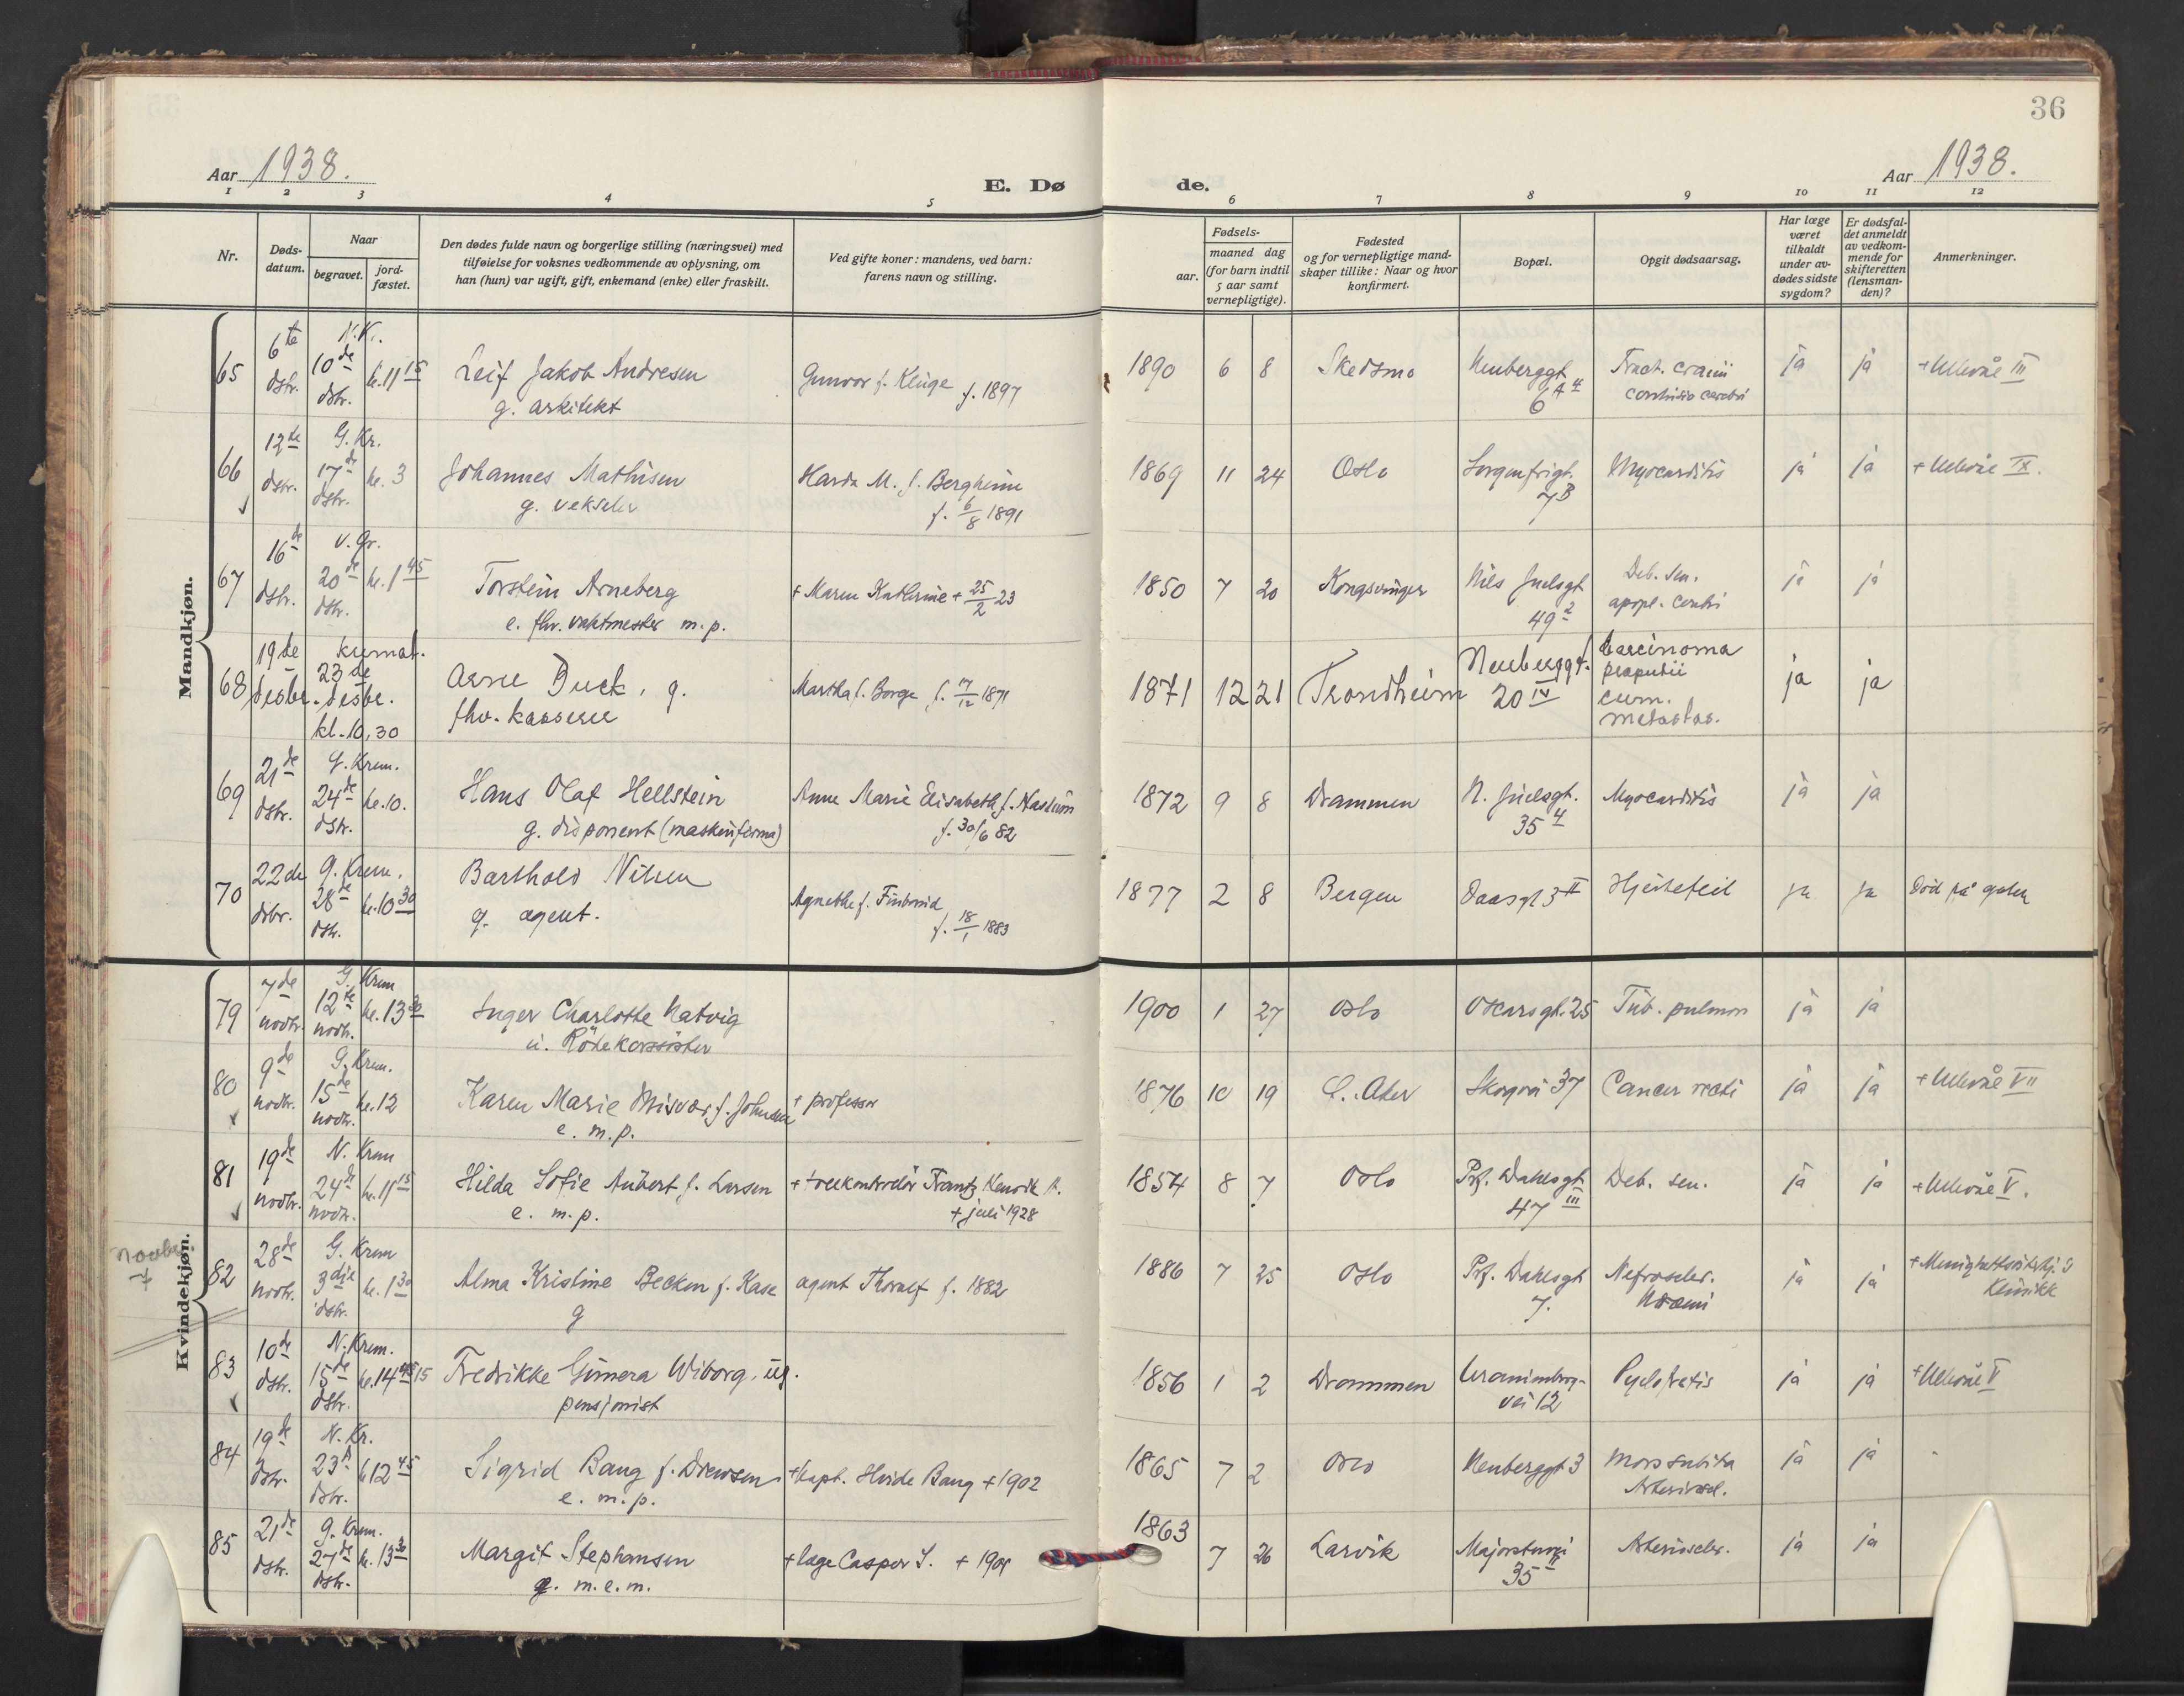 36
Aar 1938.
E. Dø de.
Aar 1938.
1 2 3 4 5 6 7 8 9 10 11 12
Nr.
Døds-
datum.
Naar
begravet.
jord-
fæstet.
Den dødes fulde navn og borgerlige stilling (næringsvei) med
tilføielse for voksnes vedkommende av oplysning, om
han (hun) var ugift, gift, enkemand (enke) eller fraskilt.
Ved gifte koner: mandens, ved barn:
farens navn og stilling.
Fødsels-
aar.
maaned dag
(for barn indtil
5 aar samt
vernepligtige).
Fødested
og for vernepligtige mand-
skaper tillike: Naar og hvor
konfirmert.
Bopæl.
Opgit dødsaarsag.
Har læge
været
tilkaldt
under av-
dødes sidste
sygdom?
Er dødsfal-
det anmeldt
av vedkom-
mende for
skifteretten
(lensman-
den)?
Anmerkninger.
Mandkjøn.
65 6te dsbr. N.Kr. 10de dsbr. kl. 11 15
Leif Jakob Andresen
g. arkitekt
Gunvor f. Kluge f. 1897
1890 6 8 Skedsmo Neuberggt. 6 A 4
Fract. cranii
ja ja + Ullevål III
66 12te dsbr. G. Kr. 17de dsbr. kl. 3
Johannes Mathisen
g. veksler
M. f. Bergheim
f. 6/8 1891
1869 11 24 Oslo Sorgenfrigt. 7B
Myocarditis
ja ja + Ullevål IX.
67 16de dsbr. V. Gr. 20de dsbr. kl. 1 45
Torstein Arneberg
e. fhv. vaktmester m.p.
+ Maren Kathrine + 25/2 23
1850 7 20 Kongsvinger Nils Juelsgt 49 2
Deb. sen.
apopl. cerebri
ja ja
68 19de desbr. kremat. 23de desbr. kl. 10,30
Arne Buck, g.
fhv. kasserer
Martha f. Borge f. 17/12 1871
1871 12 21 Trondheim Neuberggt. 20 IV
Carcinoma
praputii
cum.
metastas.
ja ja
69 21de dsbr. G. Krem. 24de dsbr. kl. 10.
Hans Olaf Hellstein
g. disponent (maskinfirma)
Anne Marie Elisabeth f.
f. 30/6 82
1872 9 8 Drammen N. Juelsgt. 35 4
Myocarditis
ja ja
70 22de dsbr. G. Krem. 28de dsbr. kl. 10 30
Barthold Nilsen
g. agent.
Agnethe f.
f. 18/1 1883
1877 2 8 Bergen Daasgt 3 II
Hjertefeil
ja ja Død på gaten
Kvindekjøn.
79 7de novbr. G. Krem 12te novbr. kl. 13 30
Inger Charlotte Natvig
u. Rödekorssöster
1900 1 27 Oslo Oscarsgt. 25
Tub. pulmon
ja ja
80 9de novbr. G. Krem. 15de novbr. kl. 12
Karen Marie f. Johnsen
e. m.p.
+ professor
1876 10 19 Aker Skogvei 37
Cancer recti
ja ja + Ullevål VII
81 19de novbr. N. Krem 24de novbr. kl. 11 15
Hilda Sofie Aubert f. Larsen
e. m.p.
+ tollkontrollör Frantz Henrik A.
+ juli 1928
1854 8 7 Oslo Prf. Dahlsgt 47 III
Deb. sen.
ja ja + Ullevål V.
novber
82 28de novbr. G. Krem 3dje dsbr. kl. 1 30
Alma Kristine Becken f. Kase
g
agent Thoralf f. 1882
1886 7 25 Oslo Prf. Dahlsgt 7.
Nefroscler.
Uræmi
ja ja
Klinikk
83 10de dsbr. N. Krem. 15de dsbr. kl. 14 15
Fredrikke Gunera Wiborg, ug.
pensjonist
1856 1 2 Drammen Uranienborg-
vei 12
ja ja + Ullevål V
84 19de dsbr. N. Kr. 23d dsbr. kl 12 45
Sigrid Bang f. Drewsen
e. m.p.
+ kapt. Hvide Bang + 1902
1865 7 2 Oslo Neuberggt 3
Mors subita
ja ja
85 21de dsbr. G. Krem. 27de dsbr. kl. 13 30
Margit Stephansen
e. m.e.m.
+ læge Casper S. +
1863 7 26 Larvik Majorstuvei 35 II
Arterioscler.
ja ja